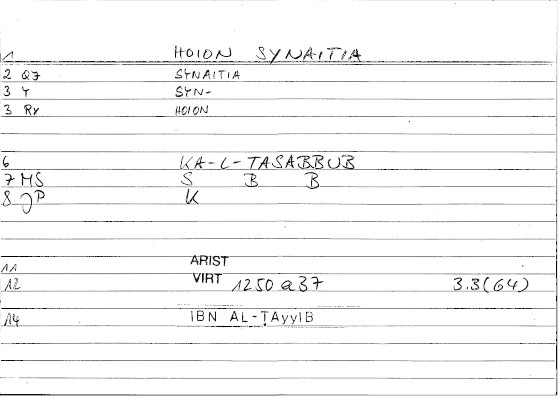 1 HOION SYNAITIA
2 QZ SYNAITIA
3 Y SYN-
3 RX HOION
6 KA-L-TASABBUB
7 MS S B B
8 JP K
11 ARIST
12 VIRT 1250 a37 3.3(64)
14 IBN AL-ṬAyyIB